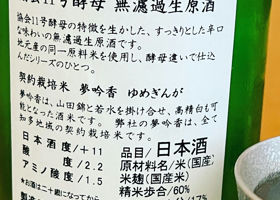 協会11号酵母 無濾過生原酒
協会11号酵母の特徴を生かした、すっきりとした辛口
な味わいの無濾過生原酒です。
地元産の同一原料米を使用し、酵母違いで仕込
んだシリーズのひとつ。
契約栽培米 夢吟香 ゆめぎんが
夢吟香は、山田錦と若水を掛け合せ、高精白も可
能となった酒米です。 弊社の夢吟香は、全て
知多地域の契約栽培米です。
日本酒度/+11
酸度/2.2
アミノ酸度/1.5
品目/日本酒
原材料名/米(国産)
米麹(国産米)
精米歩合/60%
*お酒は二十歳になってから